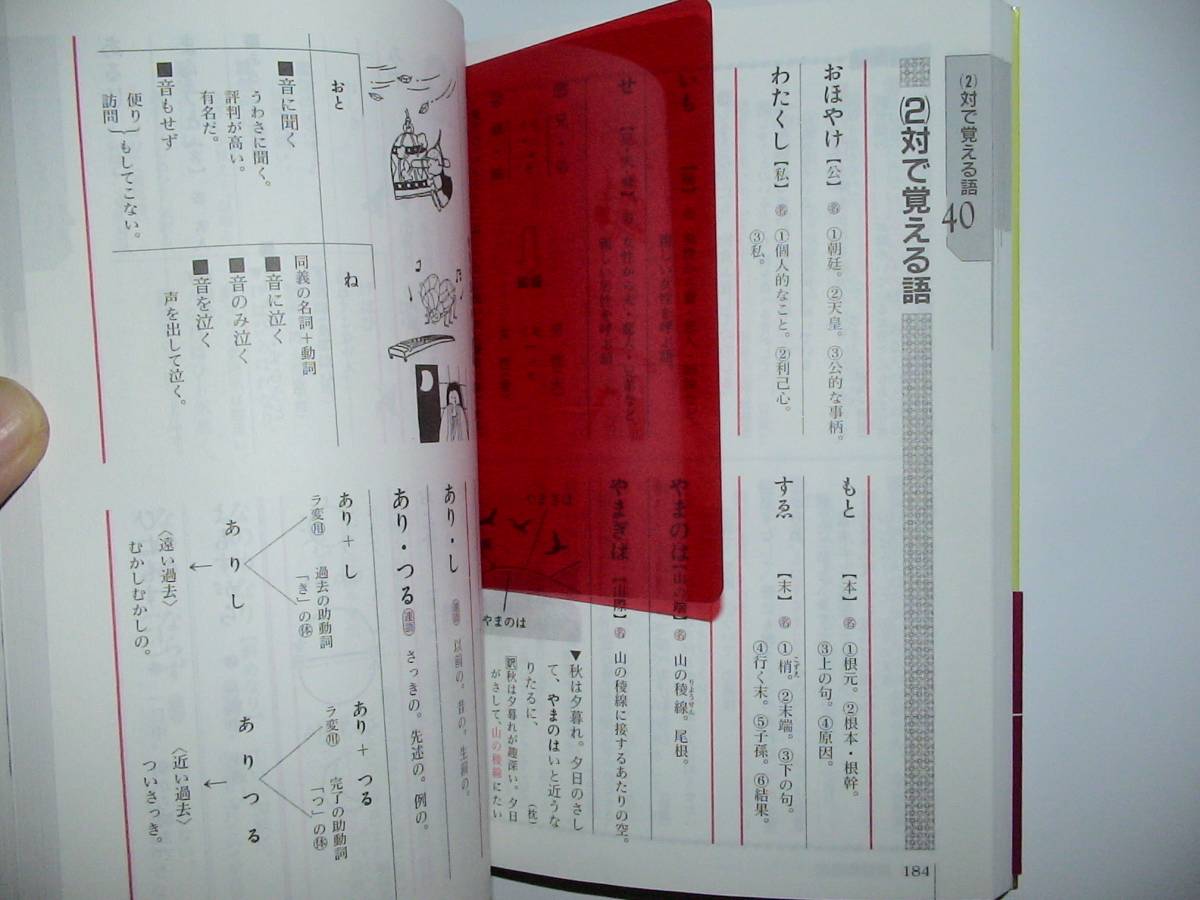 (2)対で覚える語 40
(2)対で覚える語
おほやけ【公】名 ①朝廷。②天皇。③公的な事柄。
わたくし【私】名 ①個人的なこと。②利己心。
③私。
いも
せ
もと【本】名 ①根元。②根本・根幹。
③上の句。④原因。
すゑ【末】名 ①梢。②末端。③下の句。
こずえ
④行く末。⑤子孫。⑥結果。
やまのは【山の端】名 山の稜線。尾根。
りょうせん
やまぎは【山際】名 山の稜線に接するあたりの空。
やまのは
▼秋は夕暮れ。夕日のさし
て、やまのはいと近うな
りたるに、(枕)
訳秋は夕暮れが趣深い。夕日
がさして、山の稜線にたい
184
おと
■音に聞く
うわさに聞く。
評判が高い。
有名だ。
■音もせず
便り
訪問
もしてこない。
ね
同義の名詞+動詞
■音に泣く
■音のみ泣く
■音を泣く
声を出して泣く。
あり・し 連語 以前の。昔の。生前の。
あり・つる 連語 さっきの。先述の。例の。
あり+し
ラ変用
過去の助動詞
「き」の体
ありし
〈遠い過去〉
むかしむかしの。
あり+つる
ラ変用
完了の助動詞
「つ」の体
ありつる
〈近い過去〉
ついさっき。